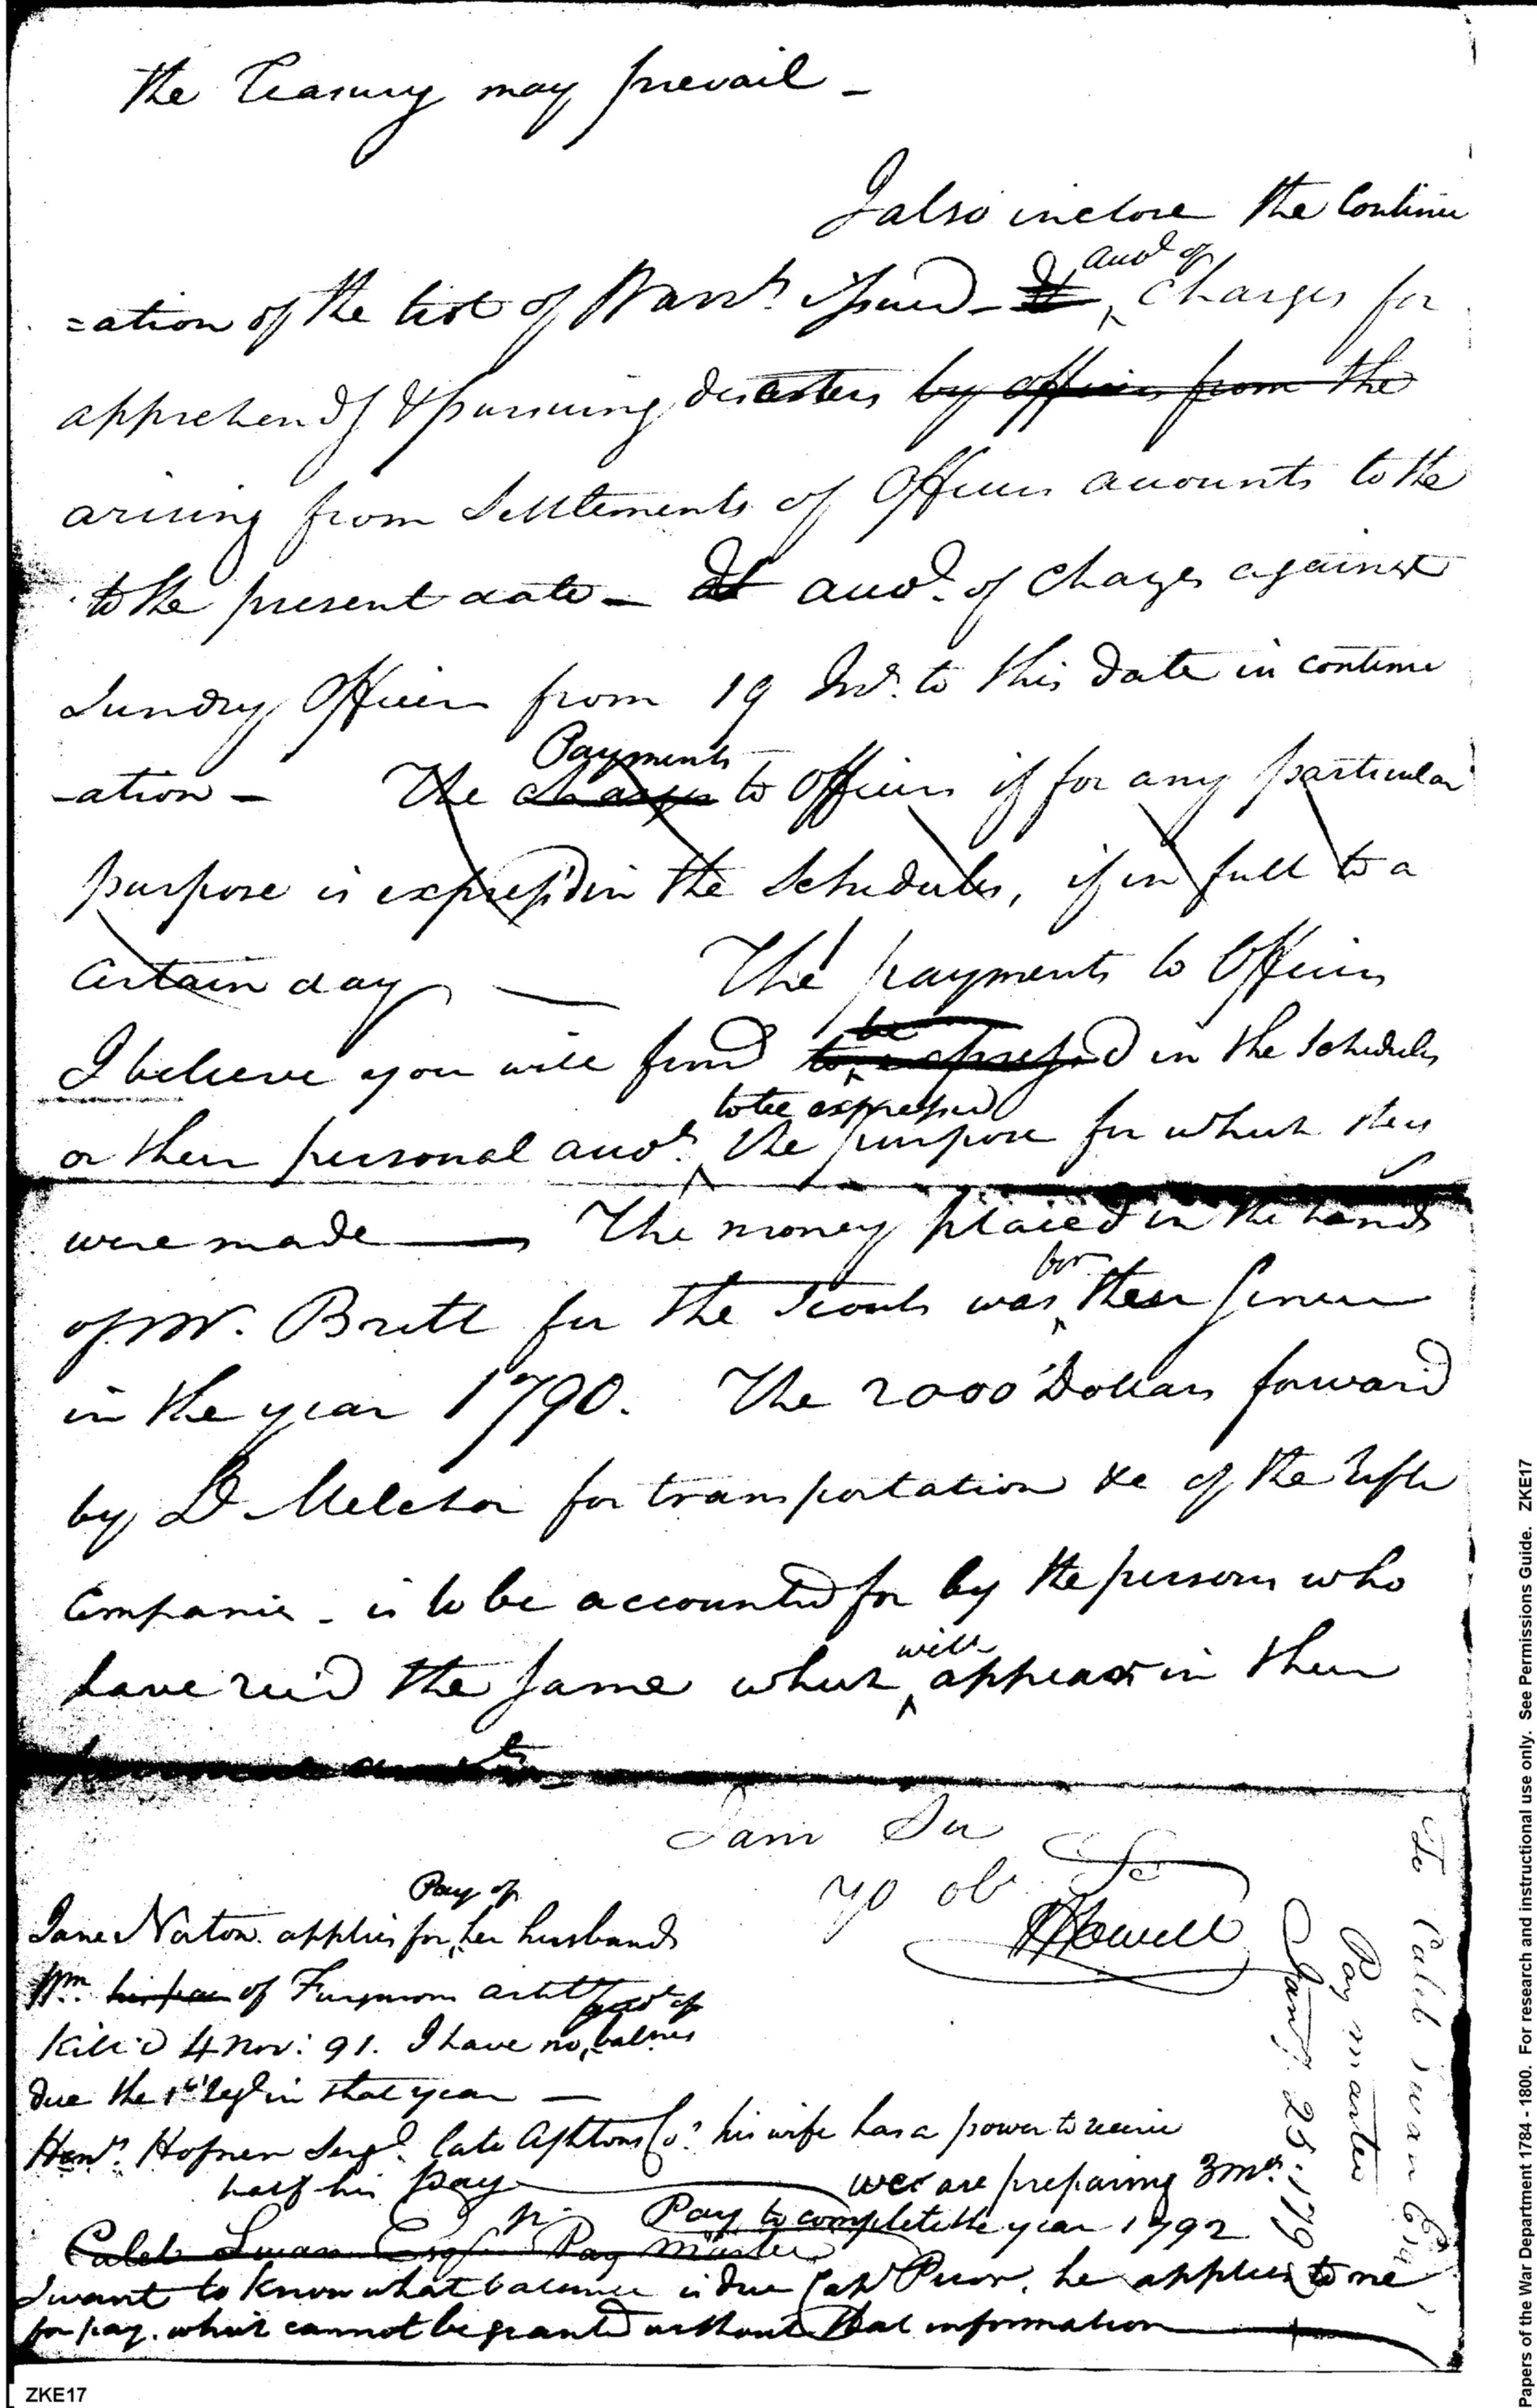 the Treasury may prevail -
I also inclose the Continu
=ation of the list of Warrts issued - acct of charges for
apprehendg & pursuing deserters by officers from the
arising from Settlements of Officers accounts to the
to the present date - acct. of Charges against
Sundry Officers from 19 Inst. to this date in continu
-ation - The charges Payments to Officers if for any particular
purpose is express'd in the Schedules, if in full to a
Certain day — The payments to Officers
I believe you will find to be expressed in the Schedules
or their personal accots. to be expressed the purpose for which they
were made — The money placed in the hands
of Mr. Britt for the Scouts was for their service
in the year 1790. The 2000 Dollars forward
by D Melcher for transportation &c of the Rifle
Companies - is to be accounted for by the persons who
have rec'd the same which will appear in their
I am Sir
yo ob Se
JHowell
To Caleb Swan Esqr,
Pay master
Jany. 25. 179
Jane Norton applies for Pay of her husband
Wm. of Furgusons artilly
Kill'd 4 Nov: 91. I have no acct of balances
due the 1st Regt in that year —
Henr. Hofner Sergt. late Ashtons Co. his wife has a power to receive
half his pay — we are preparing 3 mos.
Pay to complete the year 1792
Caleb Swan Esqr Pay Master
I want to know what balance is due Capt Prior, he applies to me
for pay. which cannot be granted without that information
Papers of the War Department 1784 - 1800. For research and instructional use only. See Permissions Guide. ZKE17
ZKE17